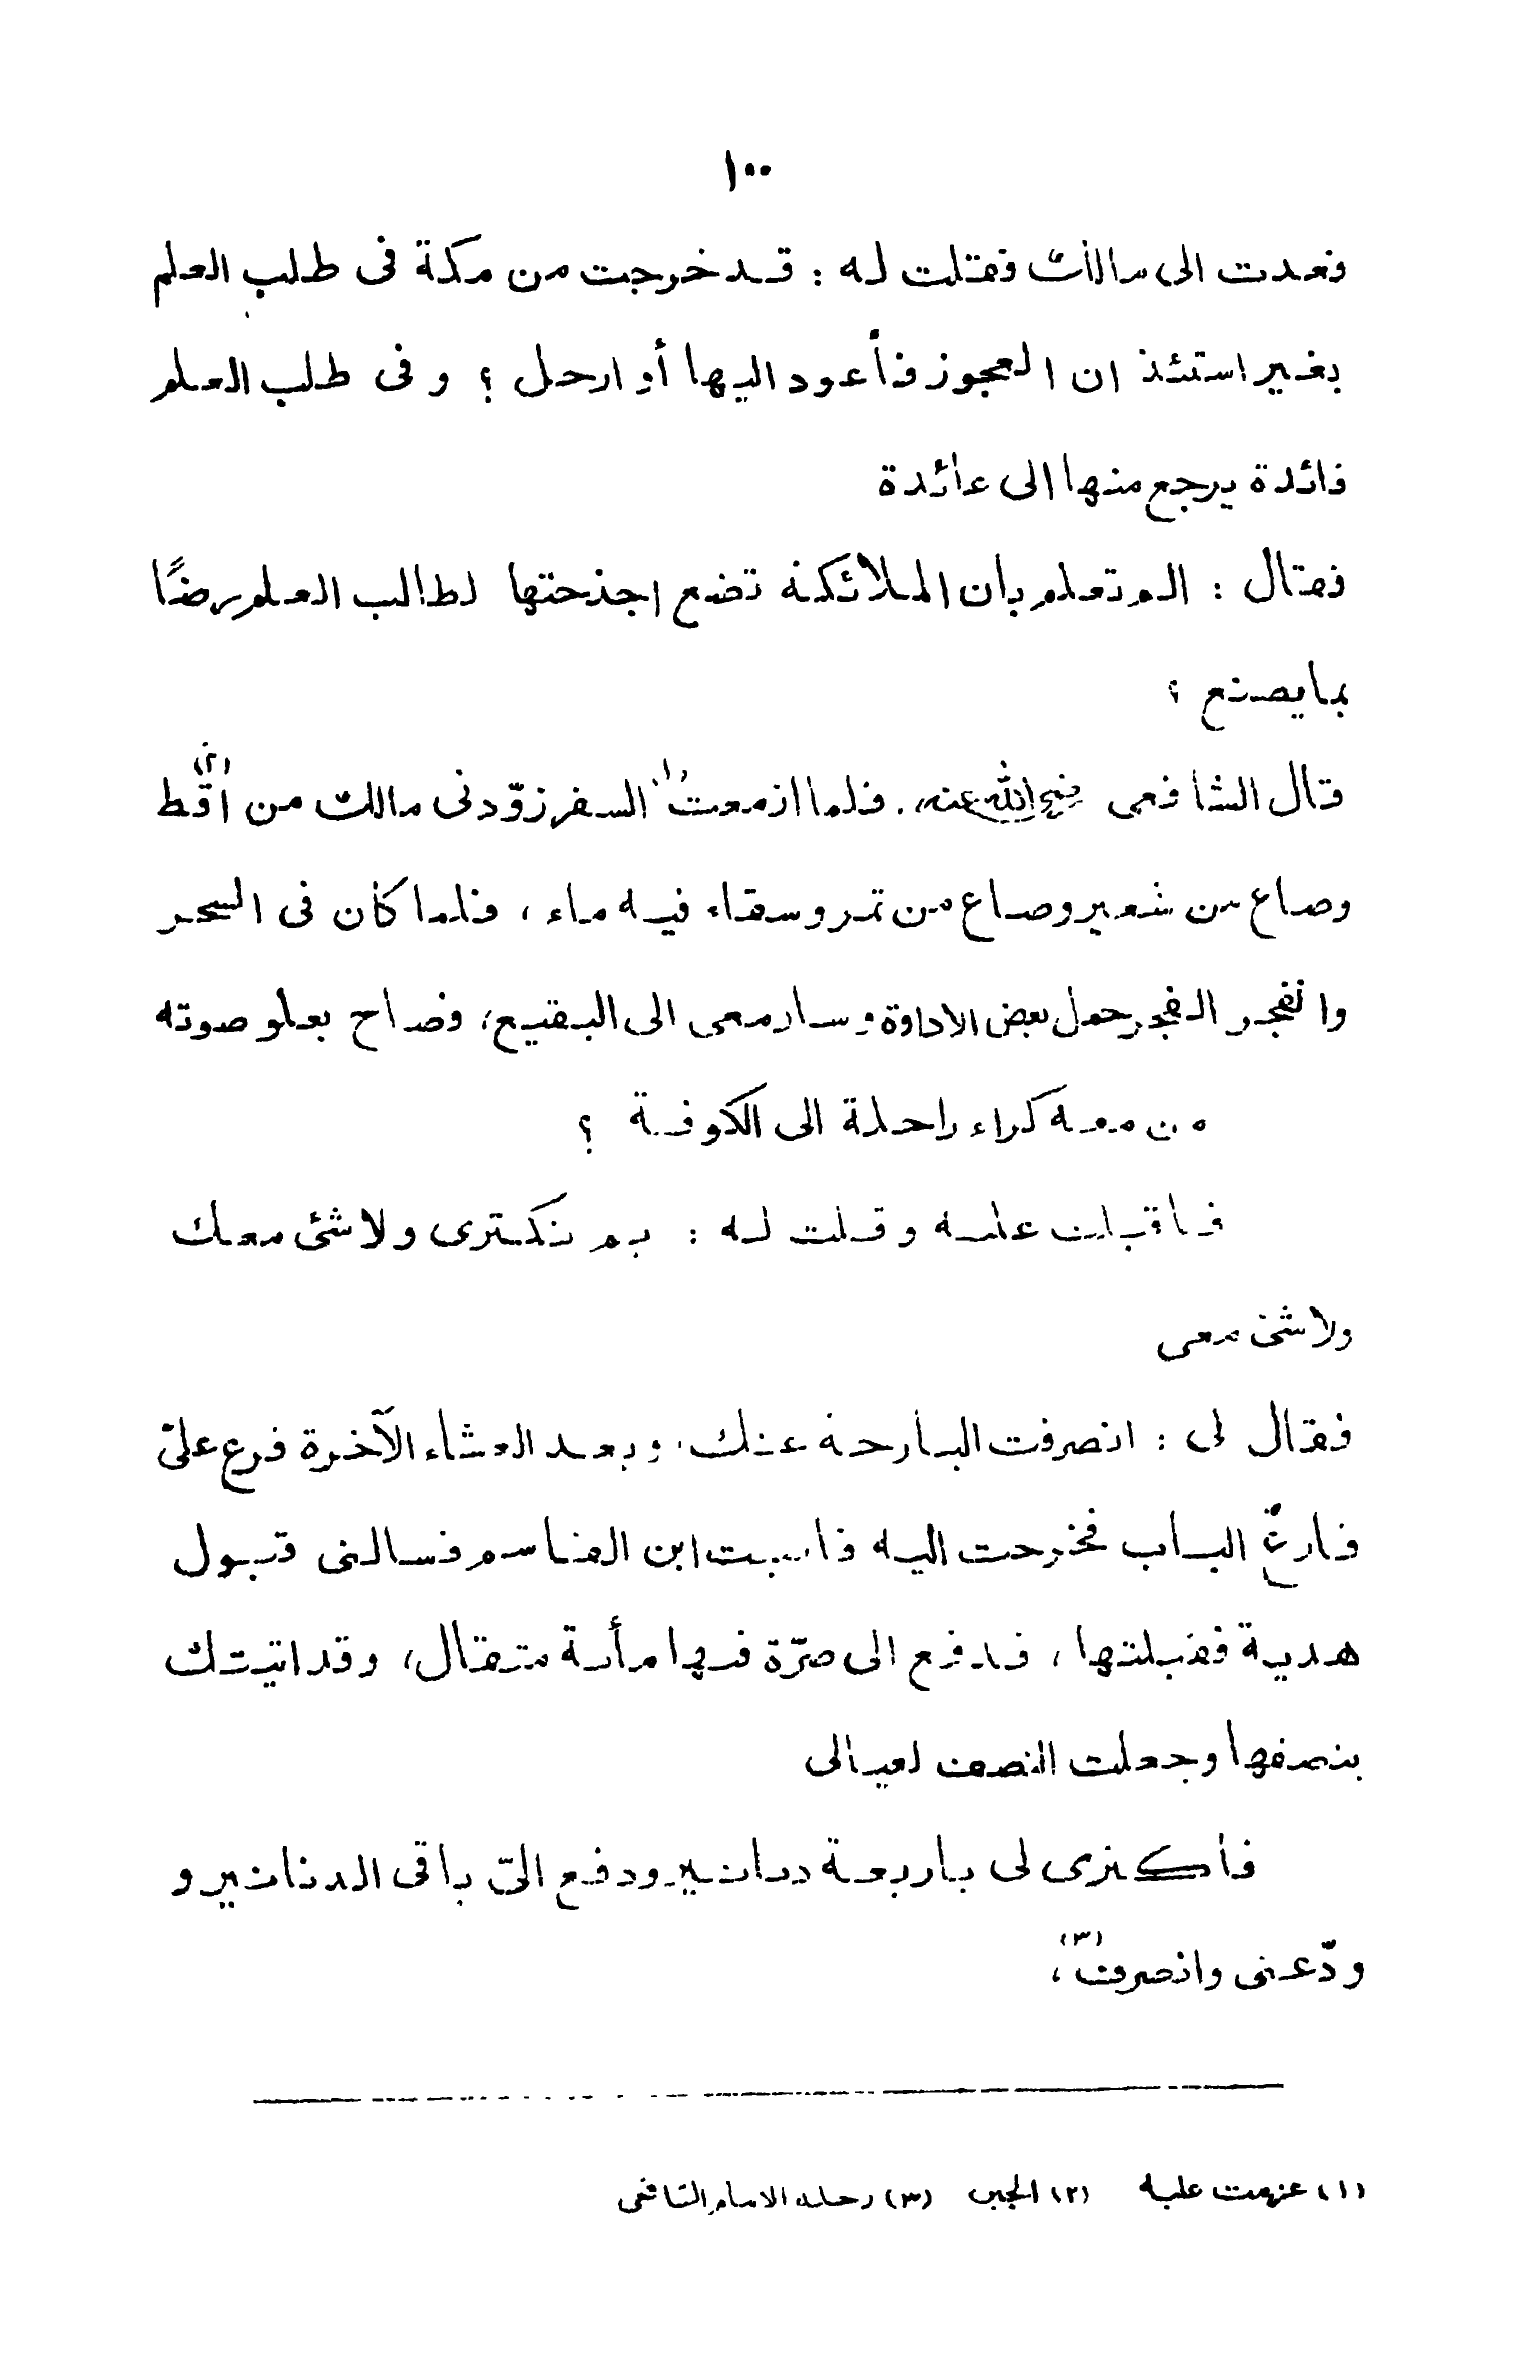 ١٠٠
فعدت الى مالك فقلت له : قد خرجت من مكة فى طلب العلم
بغير استئذان العجوز فأعود اليها أو ارحل ؟ وفى طلب العلم
فائدة يرجع منها الى عائدة
فقال : الم تعلم بان الملائكة تضع اجنحتها لطالب العلم رضًا
بما يصنع ؟
قال الشافعى رضى الله عنه . فلما ازمعت (١) السفر زوّدنى مالك من اقط (٢)
وصاع من شعير وصاع من تمر وسقاء فيه ماء ، فلما كان فى السحر
وانفجر الفجر حمل بعض الاداوة وسار معى الى البقيع ، فصاح بعلو صوته
من معه كراء راحلة الى الكوفة ؟
فاقبلت عليه وقلت له : بم تكترى ولا شئ معك
ولا شئ معى
فقال لى : انصرفت البارحة عنك ، وبعد العشاء الآخرة قرع علىّ
قارع الباب فخرجت اليه فاصبت ابن القاسم فسالنى قبول
هدية فقبلتها ، فدفع الى صرّة فيها مأية مثقال ، وقد اتيتك
بنصفها وجعلت النصف لعيالى
فأكترى لى باربعة دنانير ودفع الىّ باقى الدنانير و
ودّعنى وانصرفت (٣) ،
(١) عزمت عليه (٢) الجبن (٣) رحلة الامام الشافعى